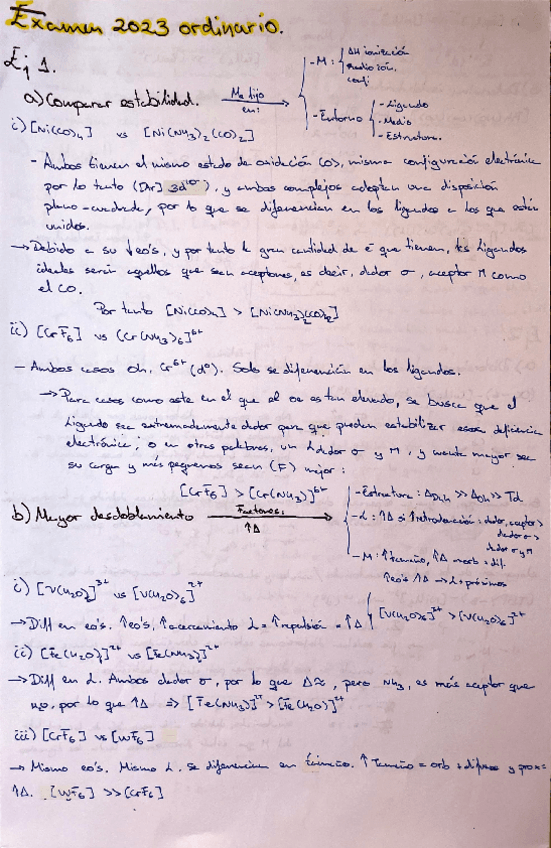 Examen 2023 ordinario.
Ej 1.
a) Comparar estabilidad. Me fijo en:
- M: ΔH ionización
radio ión.
confi
- Entorno - Ligando
- Medio
- Estructura.
i) [Ni(CO)4] vs [Ni(NH3)2(CO)2]
- Ambos tienen el mismo estado de oxidación (0), misma configuración electrónica
por lo tanto (Ar] 3d10), y ambos complejos adoptan una disposición
plano-cuadrada, por lo que se diferencian en los ligandos a los que están
unidos.
→ Debido a su ↓eo's, y por tanto la gran cantidad de e- que tienen, los ligandos
ideales serán aquellos que sean aceptores, es decir, dador σ, aceptor π como
el CO.
Por tanto [Ni(CO)4] > [Ni(NH3)2(CO)2]
ii) [CrF6] vs [Cr(NH3)6]6+
- Ambos casos Oh, Cr6+ (d0). Solo se diferencian en los ligandos.
→ Para casos como este en el que el oe es tan elevado, se busca que el
ligando sea extremadamente dador para que puedan estabilizar esa deficiencia
electrónica; o en otras palabras, un L dador σ y π, y cuanto mayor sea
su carga y más pequeños sean (F) mejor:
[CrF6] > [Cr(NH3)6]6+
b) Mayor desdoblamiento Factores: ↑Δ
- Estructura: ΔD4h >> ΔOh >> Td
- L: ↑Δ si ↑retrodonación: dador, aceptor >
dador σ >
dador σ y π
- M: ↑tamaño, ↑Δ → orb + dif.
↑eo's ↑Δ → L + próximos
i) [V(H2O)6]3+ vs [V(H2O)6]2+
→ Diff en eo's. ↑eo's, ↑acercamiento L = ↑repulsión = ↑Δ [V(H2O)6]3+ > [V(H2O)6]2+
ii) [Fe(H2O)6]2+ vs [Fe(NH3)6]2+
→ Diff en L. Ambos dador σ, por lo que Δ≈, pero NH3, es más aceptor que
H2O, por lo que ↑Δ ⇒ [Fe(NH3)]2+ > [Fe(H2O)]2+
iii) [CrF6] vs [WF6]
→ Mismo eo's. Mismo L. Se diferencian en tamaño. ↑Tamaño = orb + difusos y prox =
↑Δ. [WF6] >> [CrF6]